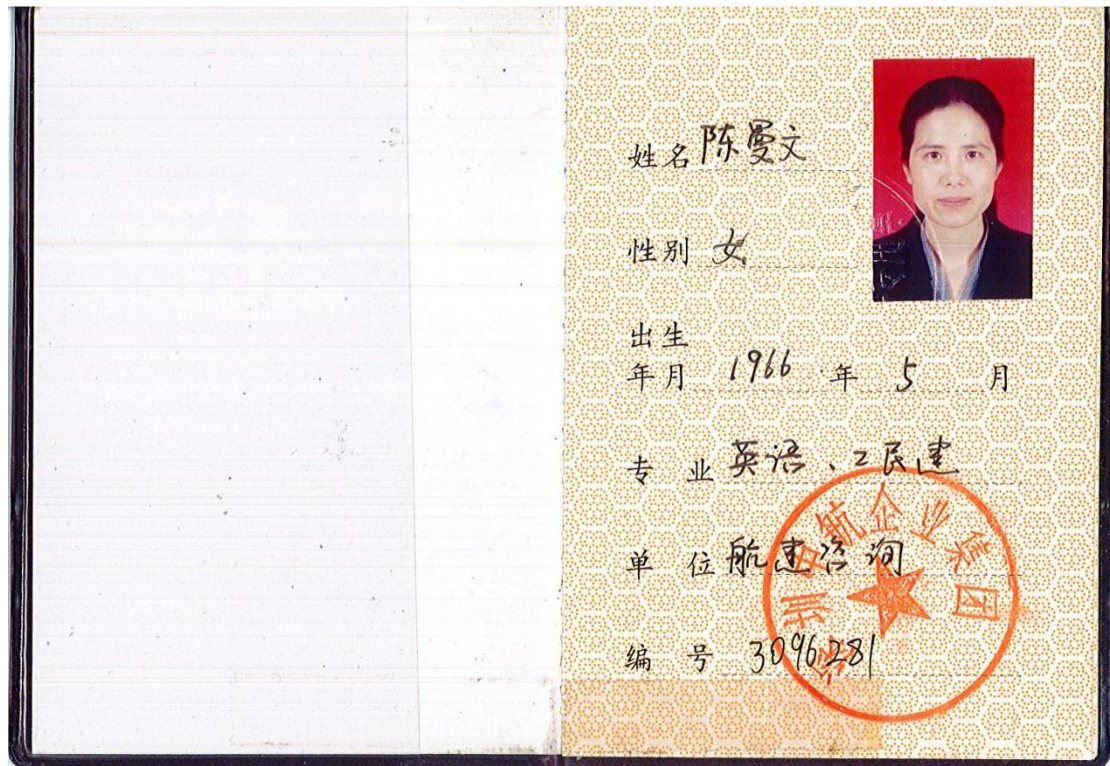 姓名 陈曼文
性别 女
出生
年月 1966 年 5 月
专业 英语、工民建
单位 航建咨询
编号 3096281
深圳中航企业集团